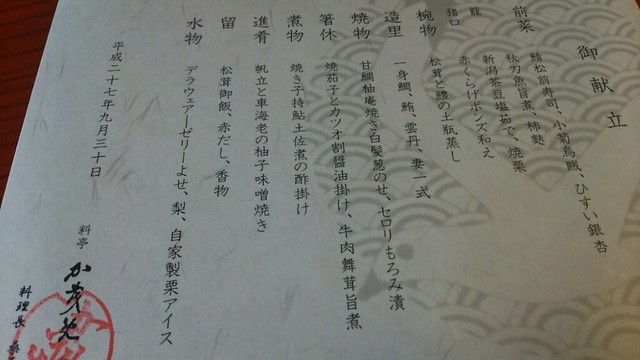 御献立
前菜 鯖松前寿司、小菊烏賊、ひすい銀杏
秋刀魚旨煮、柿麩
籠 新潟茶豆塩茹で、焼栗
猪口 赤くらげポンズ和え
椀物 松茸と鱧の土瓶蒸し
造里 一身鯛、鮪、雲丹、妻一式
焼物 甘鯛柚庵焼き白髪葱のせ、セロリもろみ漬
箸休 焼茄子とカツオ割醤油掛け、牛肉舞茸旨煮
煮物 焼き子持鮎土佐煮の酢掛け
進肴 帆立と車海老の柚子味噌焼き
留 松茸御飯、赤だし、香物
水物 デラウェアーゼリーよせ、梨、自家製栗アイス
平成二十七年九月三十日
料亭
料理長